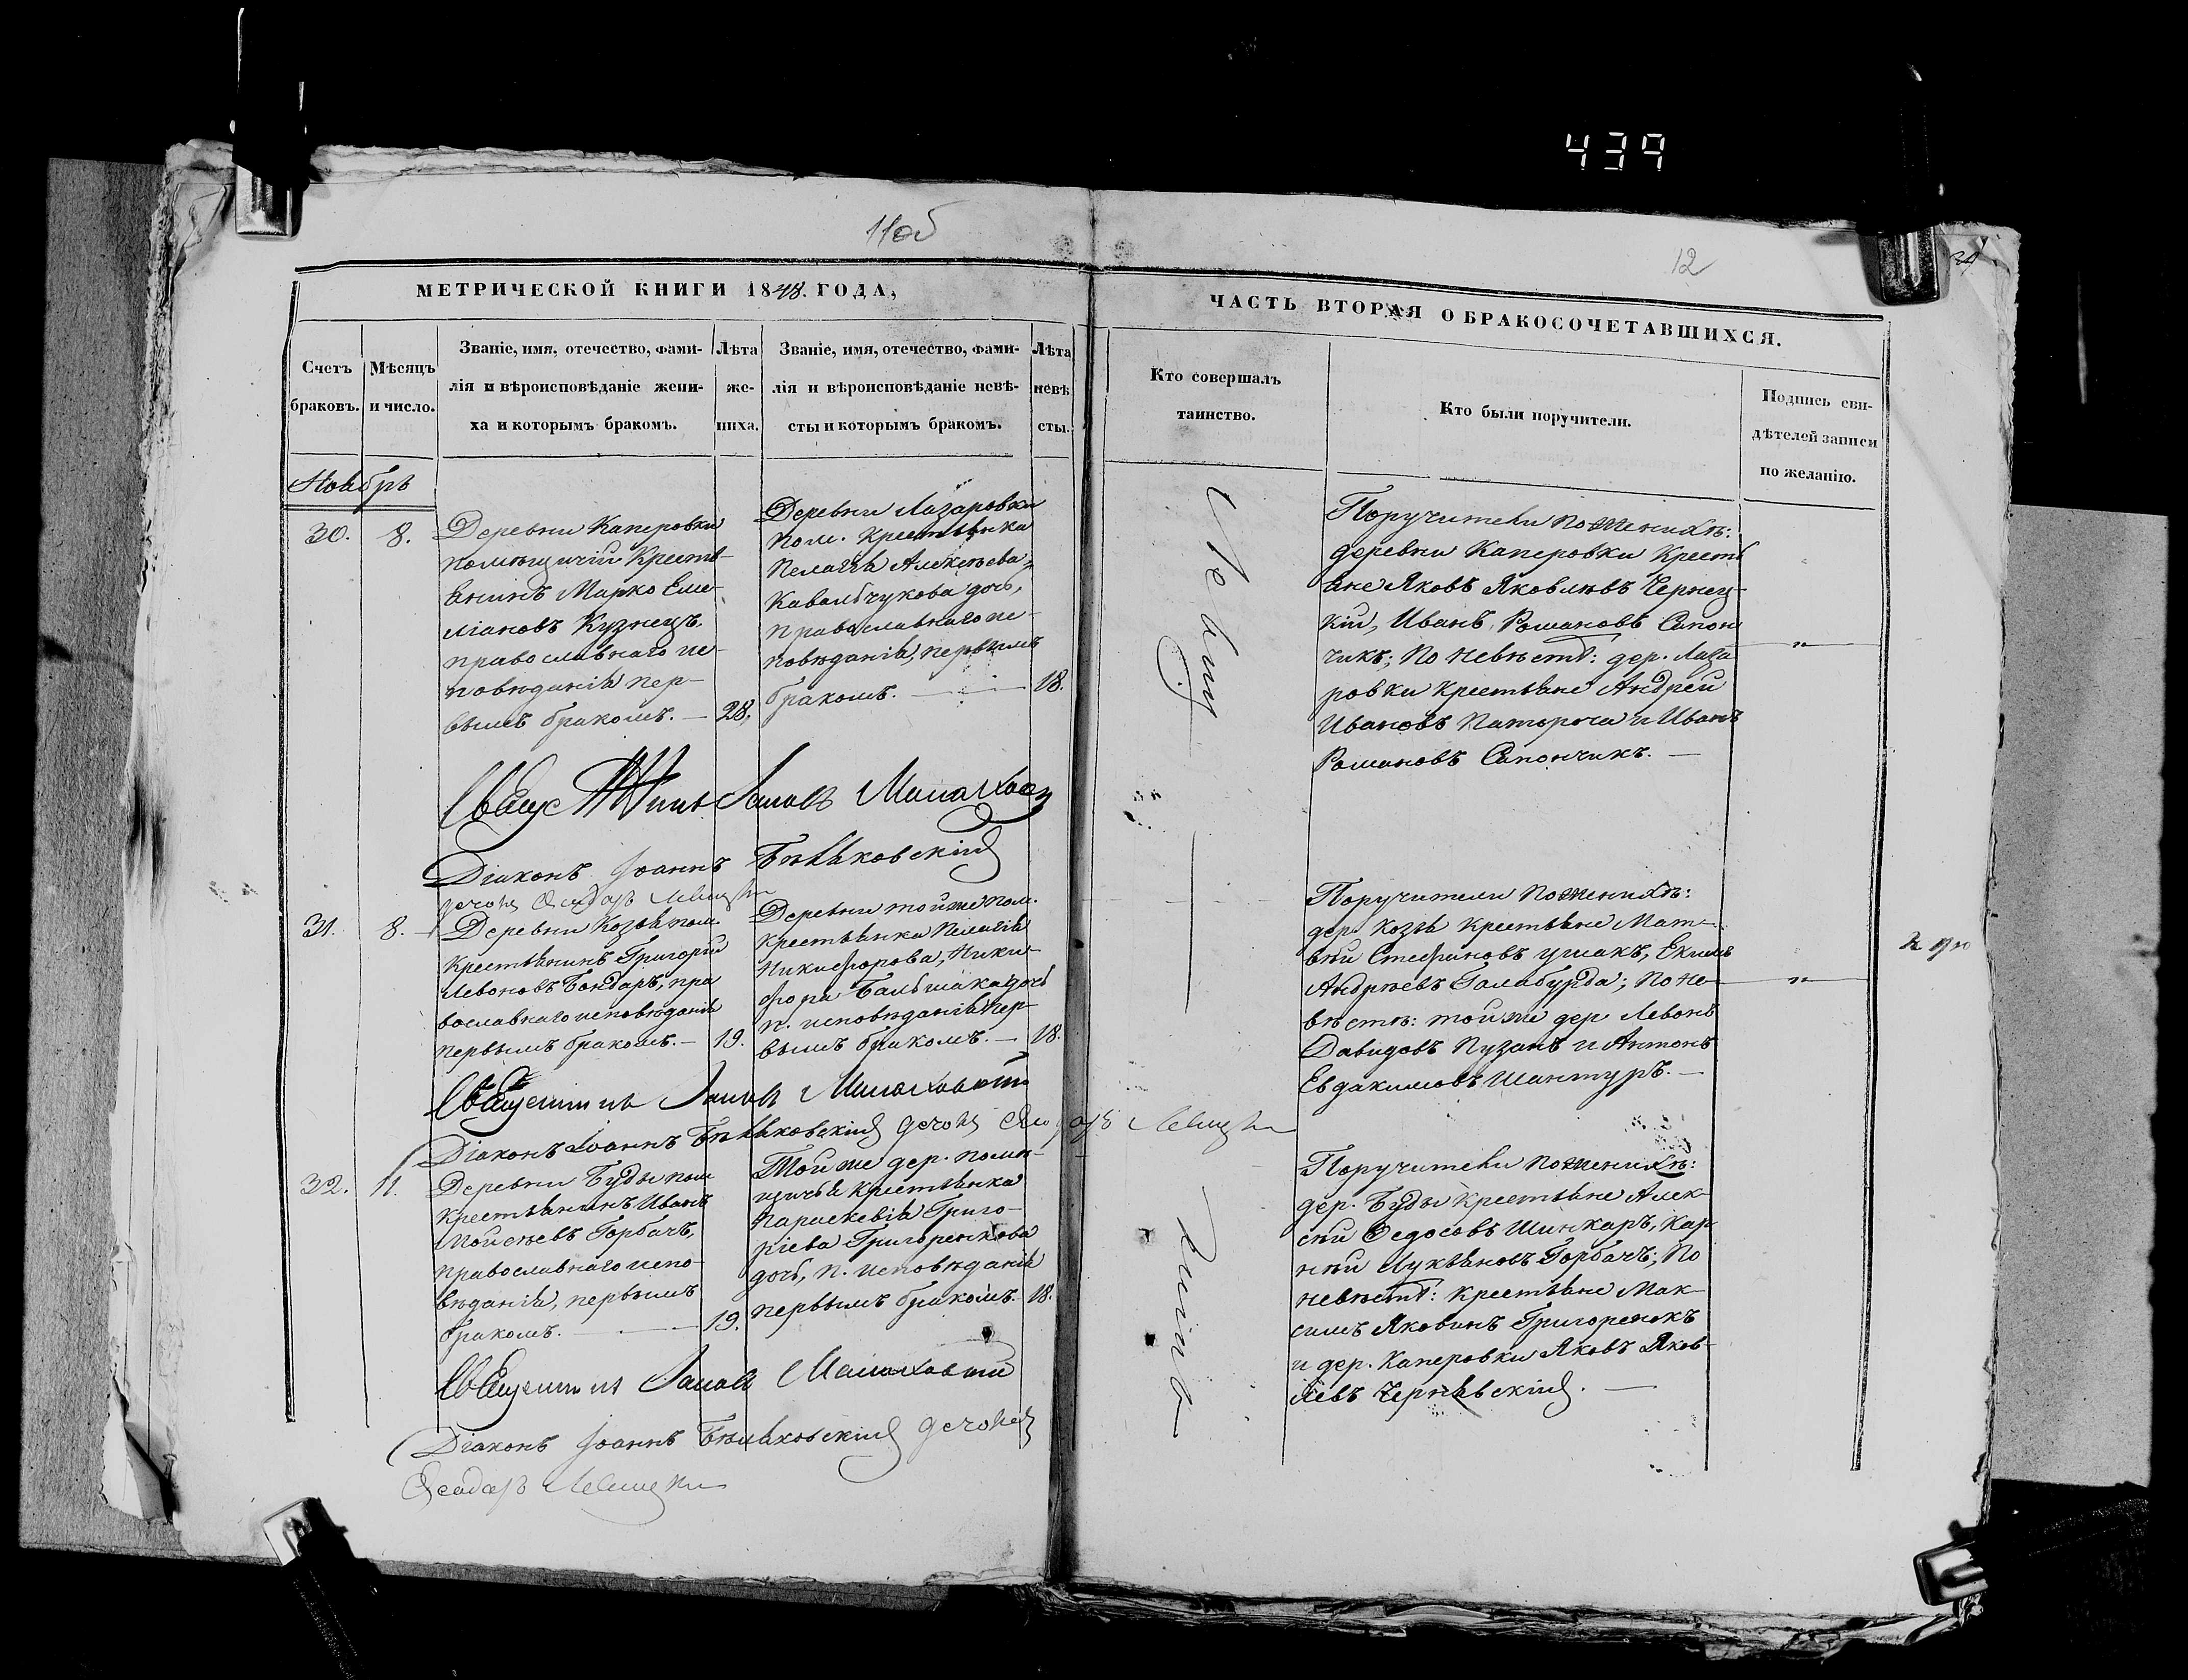 439
11об
12
МЕТРИЧЕСКОЙ КНИГИ 1848. ГОДА,
ЧАСТЬ ВТОРАЯ О БРАКОСОЧЕТАВШИХСЯ.
Счетъ
браковъ.
Мѣсяцъ
и число.
Званіе, имя, отечество, фами-
лія и вѣроисповѣданіе жени-
ха и которымъ бракомъ.
Лѣта
же-
ниха.
Званіе, имя, отечество, фами-
лія и вѣроисповѣданіе невѣ-
сты и которымъ бракомъ.
Лѣта
невѣ
сты.
Кто совершалъ
таинство.
Кто были поручители.
Подпись сви-
дѣтелей записи
по желанію.
Ноябрь
30.
8.
Деревни Каперовки
помѣщичій Кресть-
янинъ Марко Еме-
ліановъ Кузнецъ,
православнаго ис-
повѣданія пер-
вымъ бракомъ. —
28,
Деревни Лазаровки
пом. Крестьянка
Пелагія Алексѣева,
Ковальчукова дочь,
православнаго ис-
повѣданія, первымъ
бракомъ. —
18.
Поручители по женихѣ:
деревни Каперовки Кресть
яне Яковъ Яковлевъ Чернец-
кій, Иванъ Романовъ Сапон
чикъ; по невѣстѣ: дер. Лаза
ровки крестьяне Андрей
Ивановъ и Иванъ
Романовъ Сапончикъ. —
Діаконъ Іоаннъ Бѣльковскій
31.
8.
Деревни Козья пом.
Крестьянинъ Григорій
Левоновъ Бондарь, пра
вославнаго исповѣданія
первымъ бракомъ. —
19.
Деревни той же пом.
крестьянка Пелагія
Никифорова, Ники-
фора Бальшака дочь
п. исповѣданія пер-
вымъ бракомъ. —
18.
Поручители по женихѣ:
дер. Козья крестьяне Мат-
вѣй Стефановъ Ушакъ, Екимъ
Андреевъ Галабурда; по не-
вѣстѣ: той же дер. Левонъ
Давидовъ Пузанъ и Антонъ
Евдакимовъ Шантуръ. —
Діаконъ Іоаннъ Бѣльковскій
32.
11.
Деревни Буды пом
крестьянинъ Иванъ
Мойсѣевъ Горбачъ,
православнаго испо-
вѣданія, первымъ
бракомъ. —
19.
Той же дер. помѣ-
щичья крестьянка
Параскевія Григо-
ріева Григоренкова
дочь, п. исповѣданія
первымъ бракомъ.
18.
Поручители по женихѣ:
дер. Буды крестьяне Алек-
сѣй Федосовъ Шинкаръ, Кар
нѣй Лукьяновъ Горбачъ; по
невѣстѣ: крестьяне Мак-
симъ Яковинъ Григоренокъ
и дер. Каперовки Яковъ Яков-
левъ Чернявскій. —
Діаконъ Іоаннъ Бѣльковскій